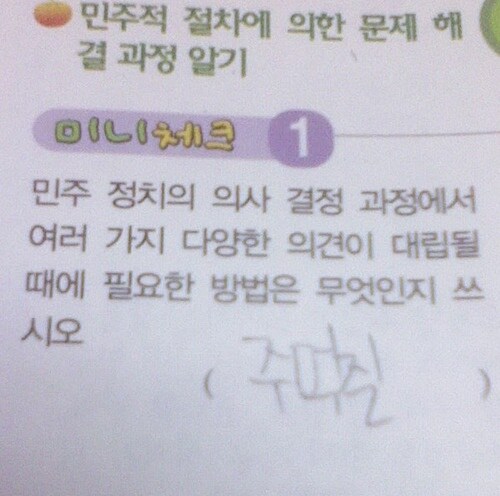 민주적 절차에 의한 문제 해
결 과정 알기
미니체크 1
민주 정치의 의사 결정 과정에서
여러 가지 다양한 의견이 대립될
때에 필요한 방법은 무엇인지 쓰
시오
( 주먹질 )